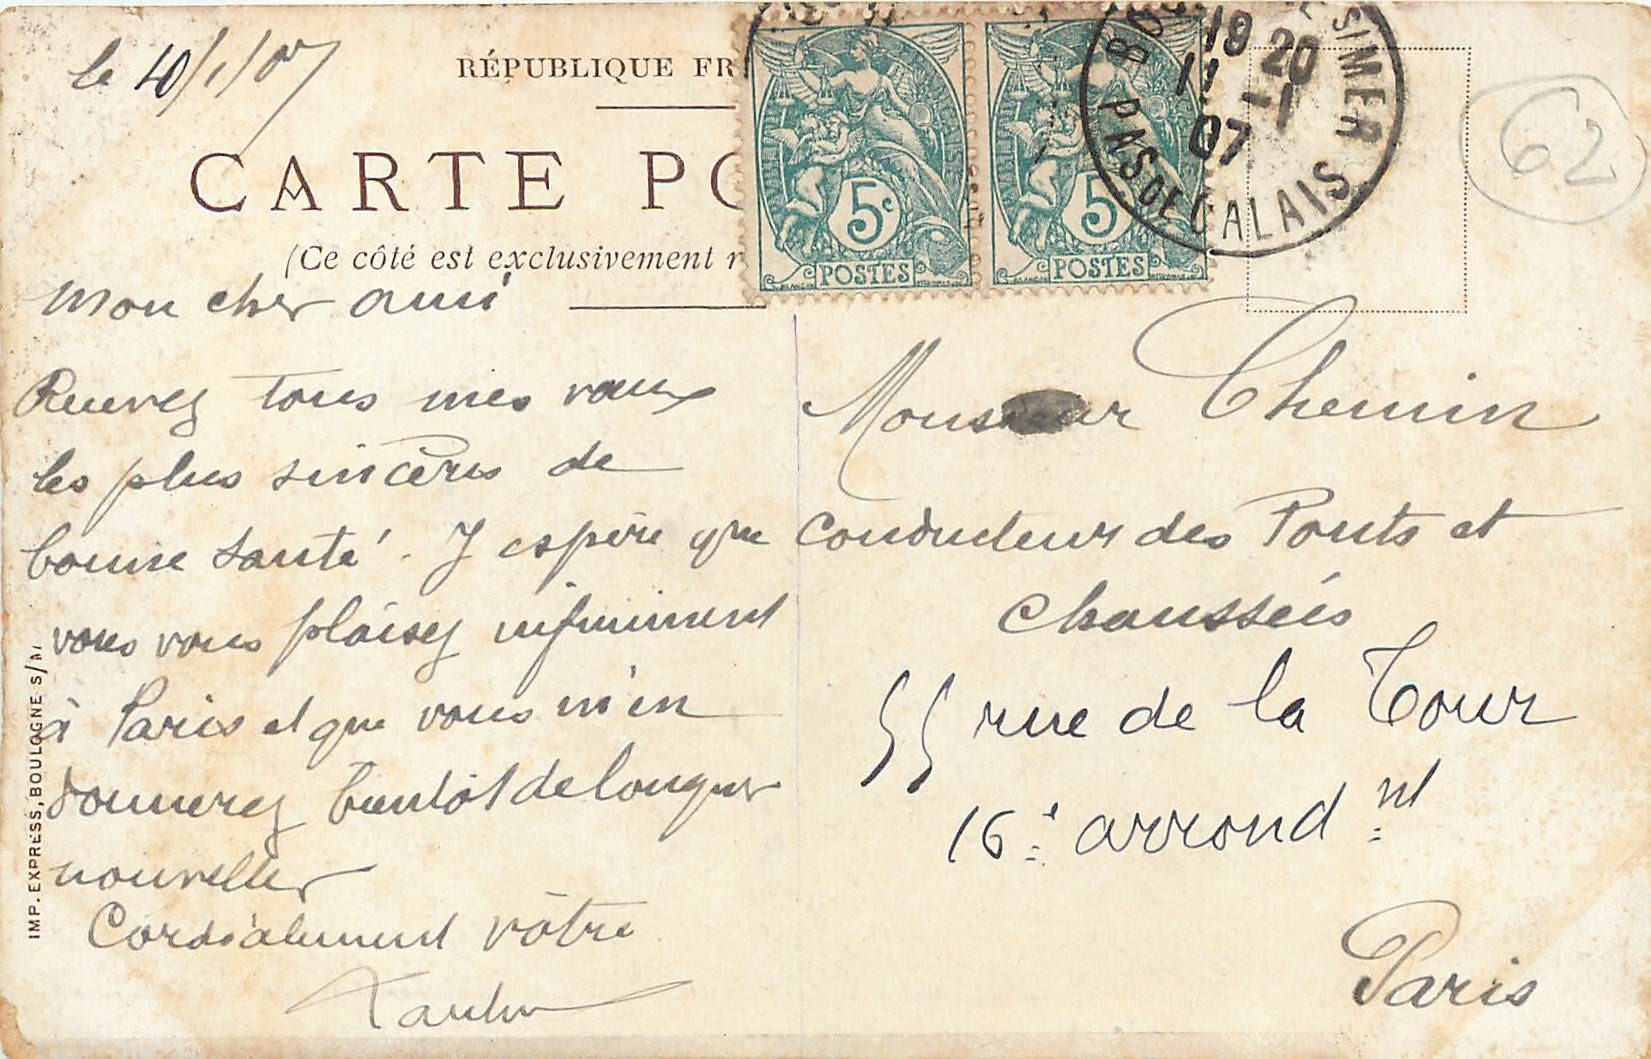 le 10/1/07
RÉPUBLIQUE FR
CARTE PO
(Ce côté est exclusivement r
5c
POSTES
5
POSTES
19 20
11 -1
07
SIMER
PAS DE CALAIS
62
Mon cher ami
Recevez tous mes vœux
les plus sincères de
bonne santé. J espère que
vous vous plaisez infiniment
à Paris et que vous m'en
donnerez bientôt de longues
nouvelles
Cordialement vôtre
Monsieur Chemin
Conducteur des Ponts et
Chaussées
55 rue de la Tour
16e arrond nt
Paris
IMP. EXPRESS, BOULOGNE S/M